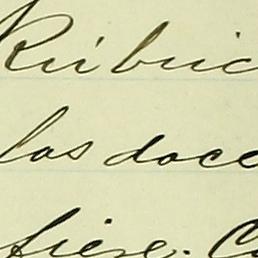 Rúbric
las doce
fiere. C